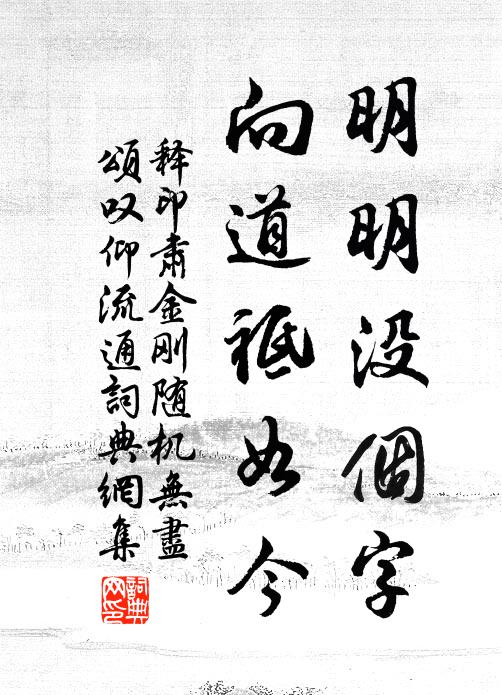 明明没個字
向道祗如今
释印肃金刚随机無盡
頌叹仰流通詞典網集
詞典
网印